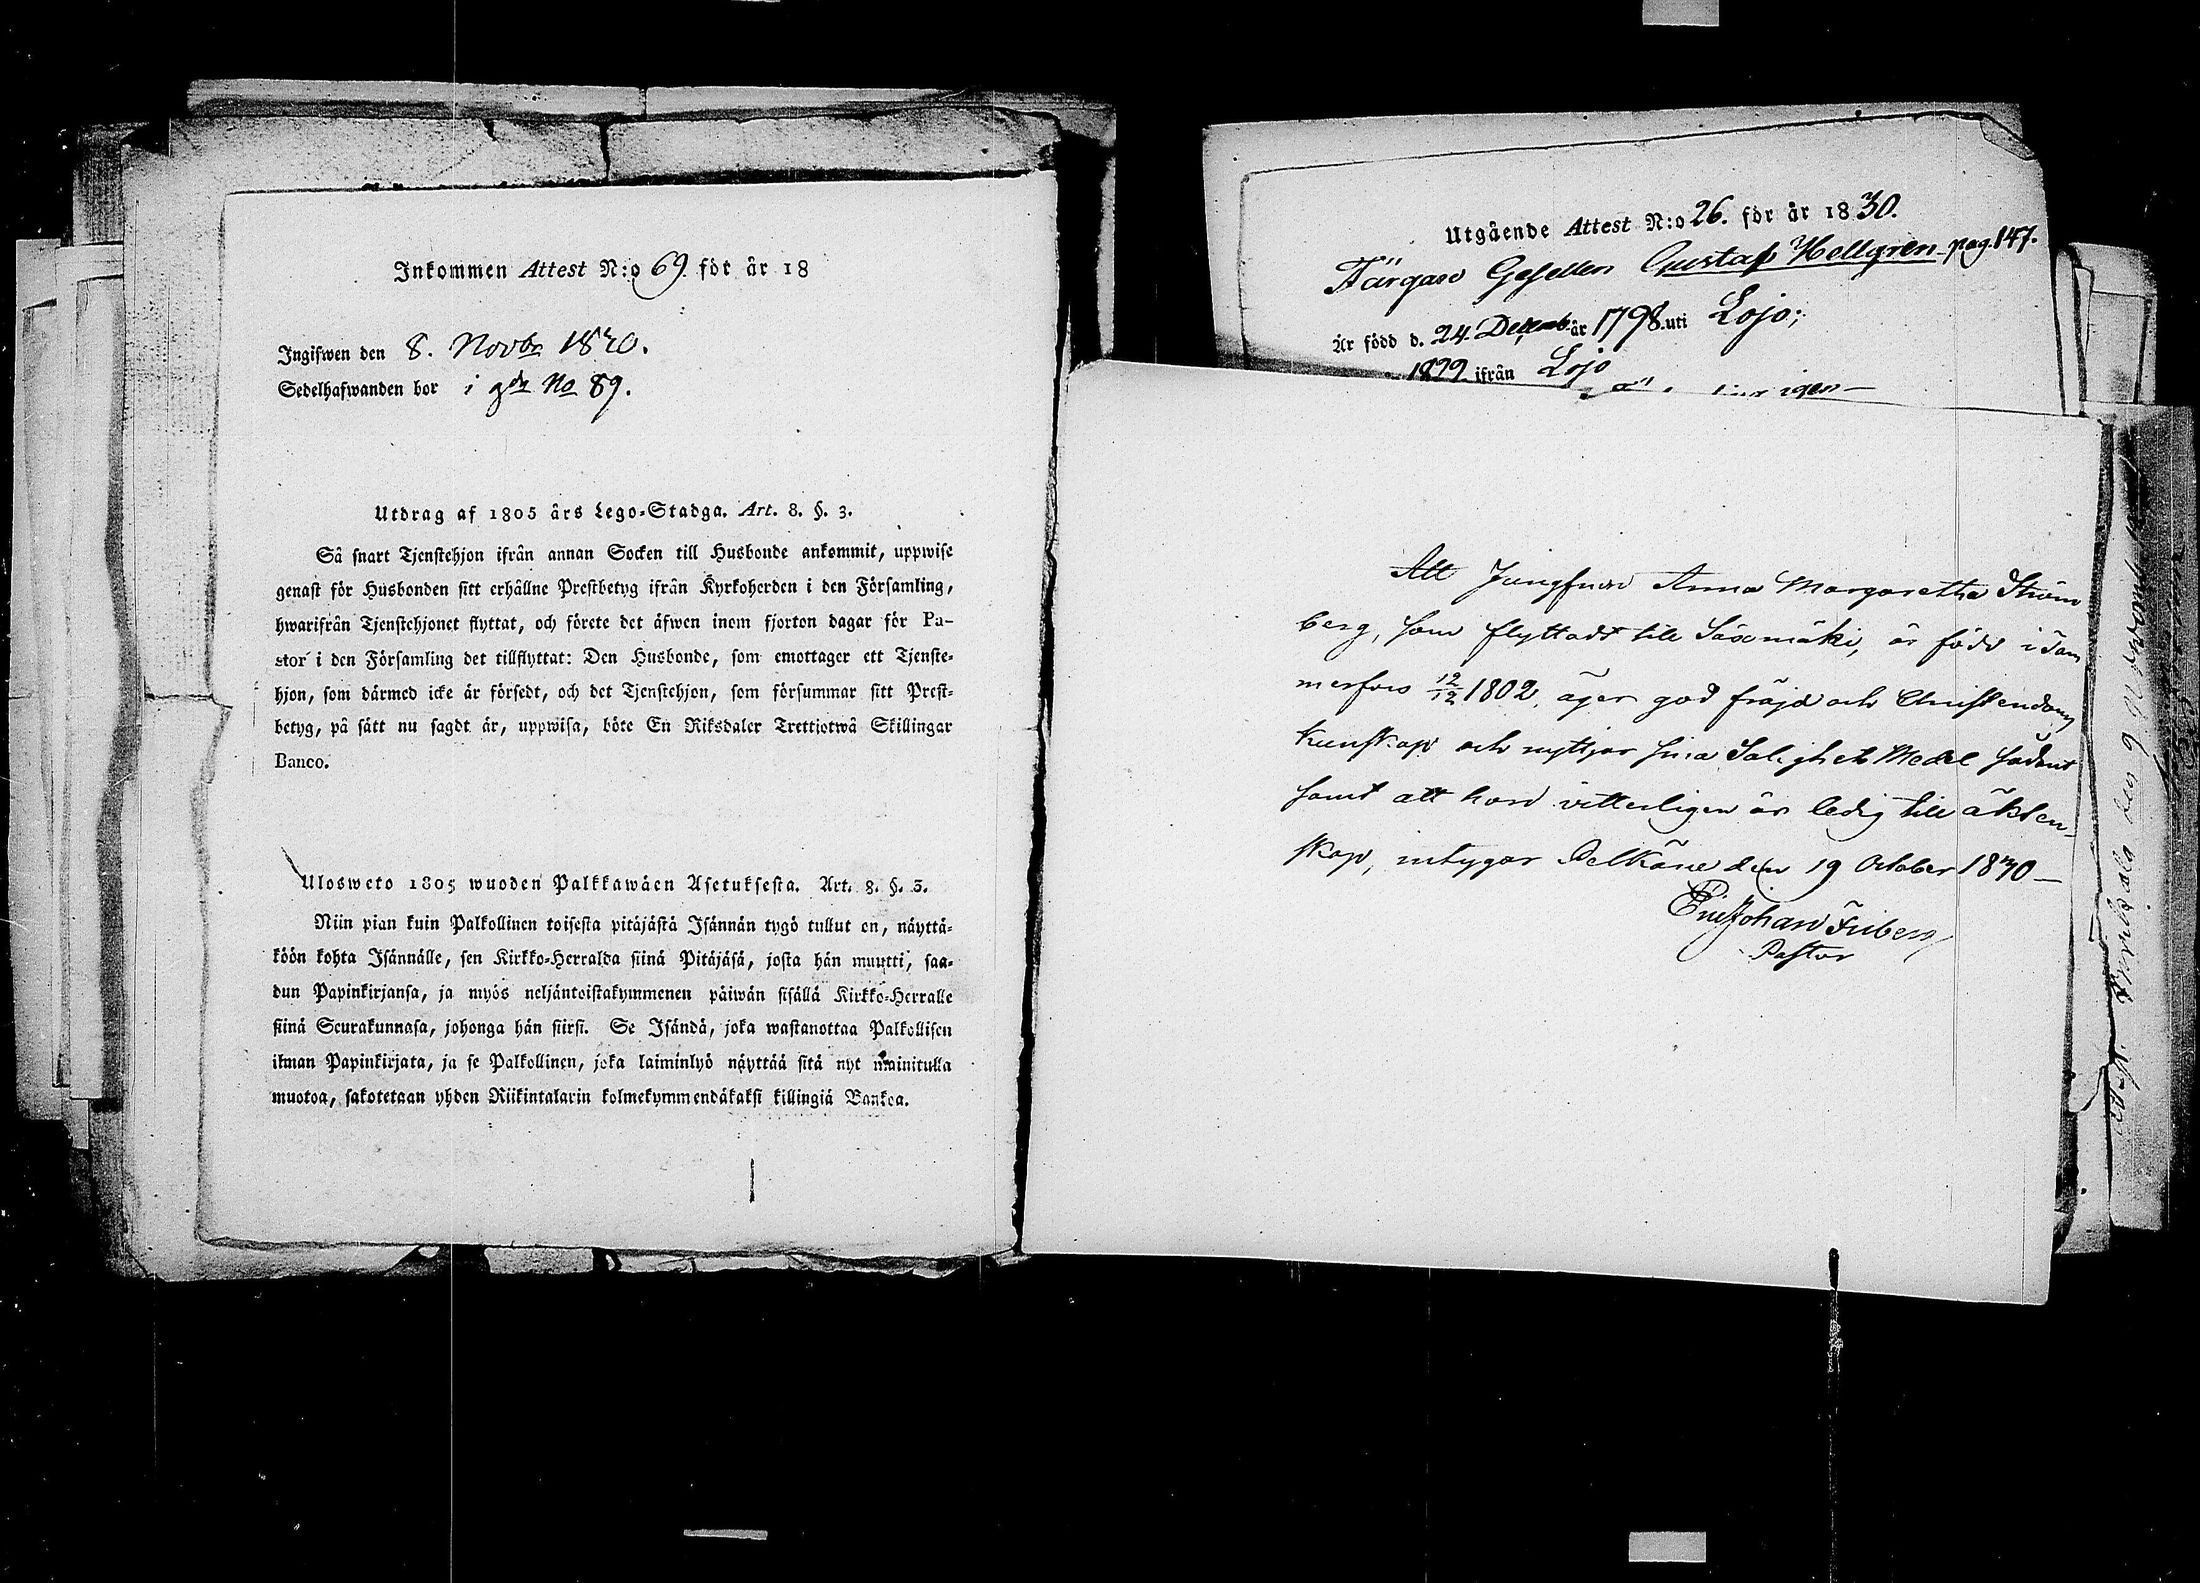 Inkommen Attest N:o 69. för år 18
Ingifwen den 8. Novbr 1830.
Sedelhafwanden bor i gdn No 89.
Utdrag af 1805 års Lego-Stadga. Art. 8. §. 3.
Så snart Tjenstehjon ifrån annan Socken till Husbonde ankommit, uppwise
genast för Husbonden sitt erhållne Prestbetyg ifrån Kyrkoherden i den Församling,
hwarifrån Tjenstehjonet flyttat, och förete det äfwen inom fjorton dagar för Pa-
stor i den Församling det tillflyttat: Den Husbonde, som emottager ett Tjenste-
hjon, som därmed icke är försedt, och det Tjenstehjon, som försummar sitt Prest-
betyg, på sätt nu sagdt är, uppwisa, böte En Riksdaler Trettiotwå Skillingar
Banco.
Ulosweto 1805 wuoden Palkkawäen Asetuksesta. Art. 8. §. 3.
Niin pian kuin Palkollinen toisesta pitäjästä Isännän tygö tullut on, näyttä-
köön kohta Isännälle, sen Kirkko-Herralda siinä Pitäjäsä, josta hän muutti, saa-
dun Papinkirjansa, ja myös neljäntoistakymmenen päiwän sisällä Kirkko-Herralle
siinä Seurakunnasa, johonga hän siirsi. Se Isändä, joka wastanottaa Palkollisen
ilman Papinkirjata, ja se Palkollinen, joka laiminlyö näyttää sitä nyt mainitulla
muotoa, sakotetaan yhden Riikintalarin kolmekymmendäkaksi killingiä Bankoa.
Utgående Attest N:o 26. för år 1830.
Färgare Gesellen Gustaf Hellgren pag. 147.
Är född d. 24. Decemb. år 1798. uti Lojo;
1829 ifrån Lojo
Att Jungfrun Anna Margaretha Ström
berg, som flyttadt till Sääxmäki, är född i Tam
merfors 12/12 1802, äger god fräjd och Christendoms
kunskap och nyttjar sina Salighets Medel sådant
samt att hon vitterligen är ledig till äkten-
skap, intygar Pelkäne den 19 October 1830 —
Eric Johan Friberg
Pastor